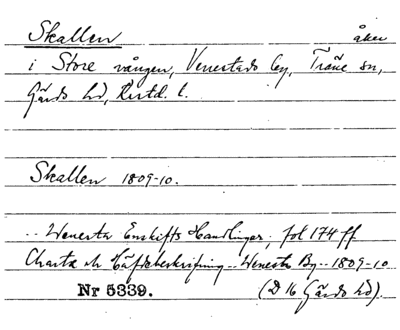 Skallen åker
i Store vången, Venestads by, Träne sn,
Gärds hd, Kristd. l.
Skallen 1809-10.
.. Wenesta Enskifts Handlingar, fol 174 ff
Charta och Häfdebeskrifning .. Wenesta By .. 1809-10
Nr 5339. (D 16 Gärds hd).